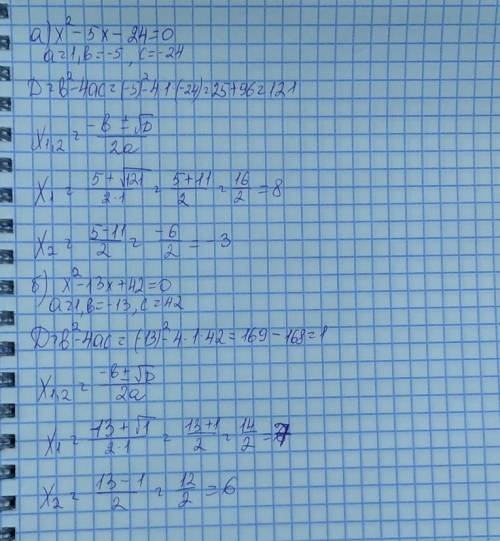 а) x² - 5x - 24 = 0
a = 1, в = -5, c = -24
D = в² - 4ac = (-5)² - 4·1·(-24) = 25 + 96 = 121
X₁,₂ = (-в ± √D) / 2a
X₁ = (5 + √121) / (2·1) = (5 + 11) / 2 = 16/2 = 8
X₂ = (5 - 11) / 2 = -6/2 = -3
б) x² - 13x + 42 = 0
a = 1, в = -13, c = 42
D = в² - 4ac = (-13)² - 4·1·42 = 169 - 168 = 1
X₁,₂ = (-в ± √D) / 2a
X₁ = (13 + √1) / (2·1) = (13 + 1) / 2 = 14/2 = 7
X₂ = (13 - 1) / 2 = 12/2 = 6